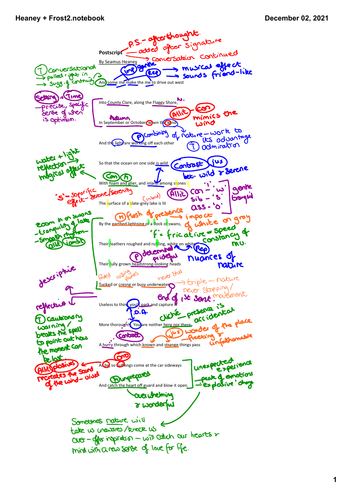 Heaney + Frost2.notebook
December 02, 2021
P.S - afterthought
added after signature
Postscript
conversation continued
By Seamus Heaney
Conversational
musical effect
sounds friend-like
And some time make the time to drive out west
Setting
Time
precise, specific
sense of when
is optimum.
Into County Clare, along the Flaggy Shore,
Allit
Con
mimics the
wind
Autumn
In September or October, when the wind
combining of nature - work to
its advantage
admiration
And the light are working off each other
water + light
reflection
magical effect
So that the ocean on one side is wild
Contrast
Jux
bet wild + serene
With foam and glitter, and inland among stones
Allit
Con
Ass
gentle
The surface of a slate-grey lake is lit
zoom in on swans
flash of presence
impact
of white on grey
By the earthed lightning of a flock of swans,
'F' - fricative = speed
constancy of
mv.
Their feathers roughed and ruffling, white on white,
determined
Rep
nuances of
nature
Their fully grown headstrong-looking heads
descriptive
Tucked or cresting or busy underwater.
triple - nature
never stopping/
movement
end of 1st sent.
reflective
Useless to think you'll park and capture it
D.A.
cliché - presence is
accidental
Cautionary
warning/
breaks the spell
to point out how
the moment can
be lost
More thoroughly. You are neither here nor there,
Contrast
Jux
wonder of the place
fleeting
unfathomable
A hurry through which known and strange things pass
Alliteration
recreates the sound
of the wind
As big soft buffetings come at the car sideways
unexpected
experience
unprepared
And catch the heart off guard and blow it open.
overwhelming
+ wonderful
Sometimes nature will
take us unawares/knock us
over - offer inspiration - will catch our hearts +
mind with a new sense of love for life.
1